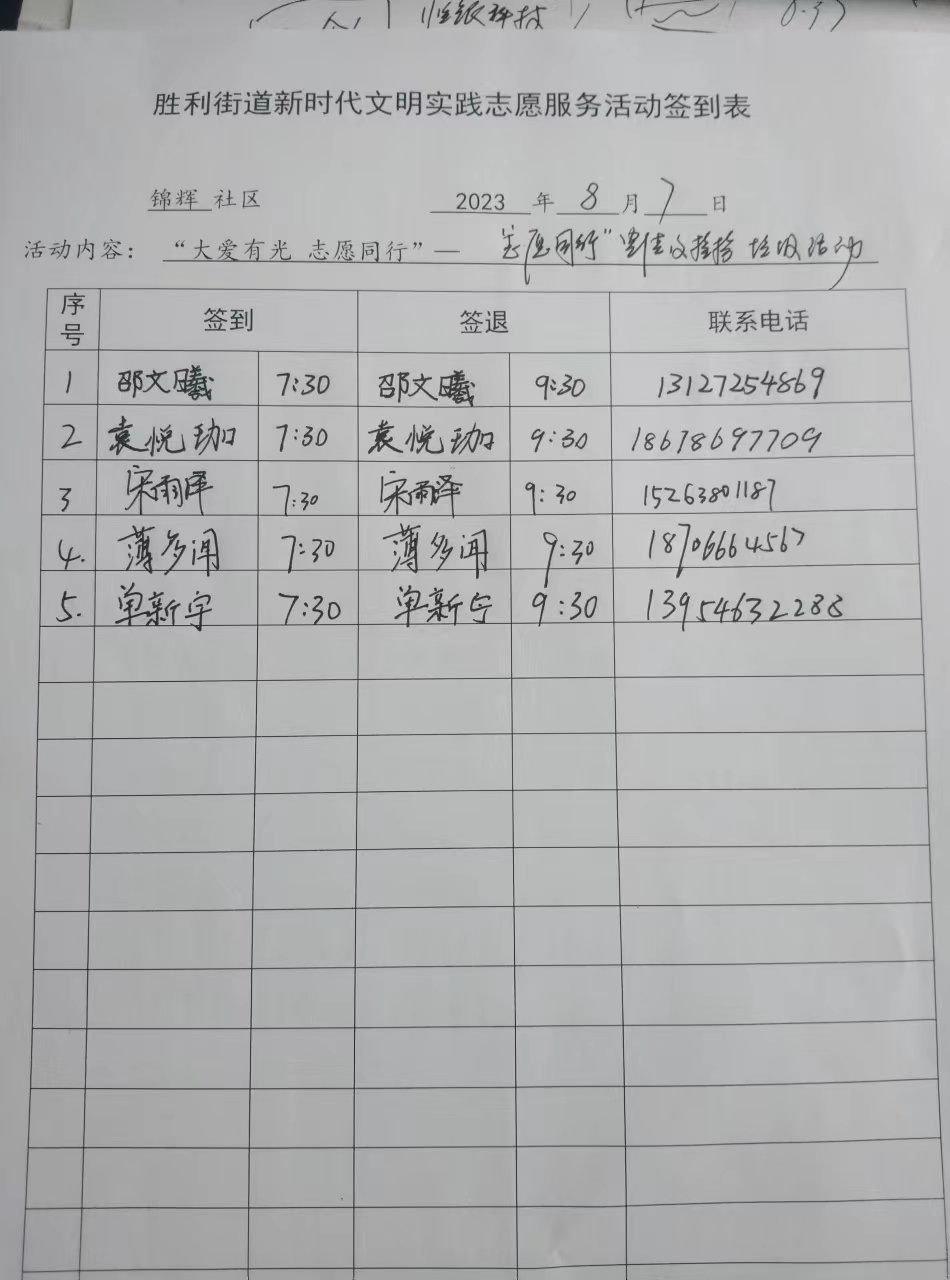 恒银科技
胜利街道新时代文明实践志愿服务活动签到表
锦辉 社区 2023 年 8 月 7 日
活动内容： “大爱有光 志愿同行”— 志愿同行” 垃圾活动
序号 签到 签退 联系电话
1 邵文曦 7:30 邵文曦 9:30 13127254869
2 袁悦珈 7:30 袁悦珈 9:30 18678697709
3 宋雨泽 7:30 宋雨泽 9:30 15263801187
4. 薄多闻 7:30 薄多闻 9:30 18706664567
5. 单新宇 7:30 单新宇 9:30 13954632288